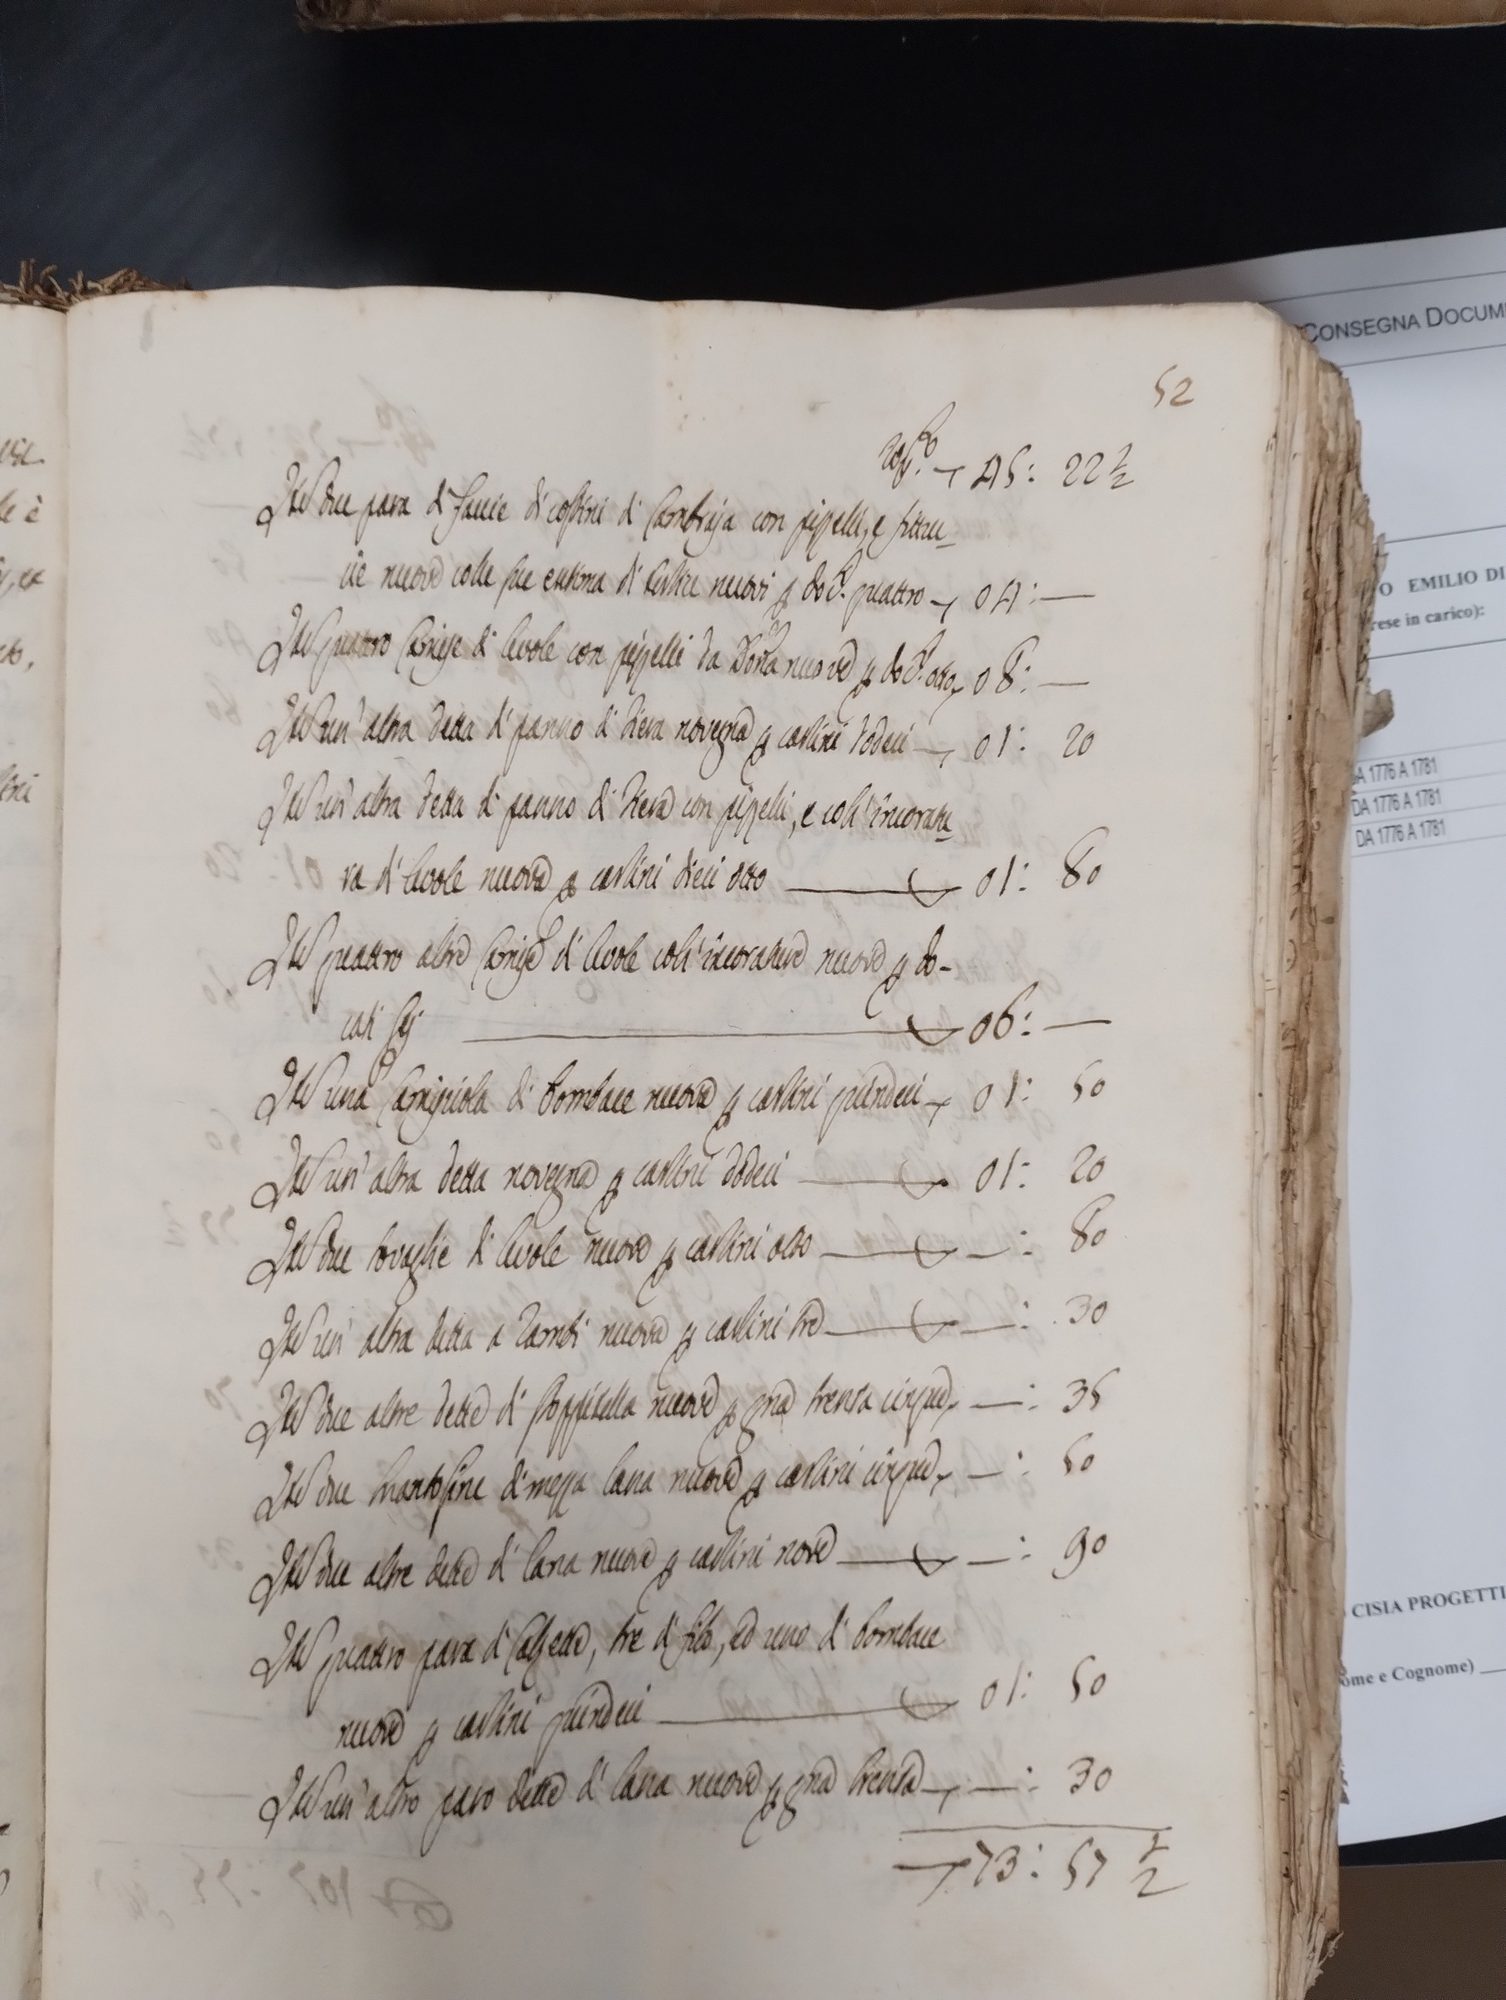 52
45: 22 1/2
Ite due para di facce di coscini di Cambraja con pizzilli, e fittu-
cie nuove colle sue enttima di tentre nuovi p doc.ti quattro 04: —
Ite quattro Camise di Tivole con pizzilli da Donna nuove p doc.ti otto 08: —
Ite un' altra detta di panno di Meta novegna p carlini dodeci 01: 20
Ite un' altra detta di panno di Meta con pizzilli, e coll' incoratu-
ra di Tivole nuova p carlini dieci otto 01: 80
Ite quattro altre Camise di Tivole coll' incorature nuove p do-
cati sej 06: —
Ite una Camiciola di bombace nuova p carlini quindeci 01: 50
Ite un' altra detta novegna p carlini dodeci 01: 20
Ite due tovaglie di Tivole nuove p carlini otto —: 80
Ite un' altra detta a nuova p carlini tre —: 30
Ite due altre dette di Stoppitella nuove p gna trenta cinque —: 35
Ite due mantesine di mezza lana nuove p carlini cinque —: 50
Ite due altre dette di lana nuove p carlini nove —: 90
Ite quattro para di Calzette, tre di filo, ed uno di bombace
nuove p carlini quindeci 01: 50
Ite un' altro paro dette di lana nuove p gna trenta —: 30
73: 57 1/2
CONSEGNA DOCUM
O EMILIO DI
rese in carico):
A 1776 A 1781
DA 1776 A 1781
DA 1776 A 1781
CISIA PROGETTI
ome e Cognome)